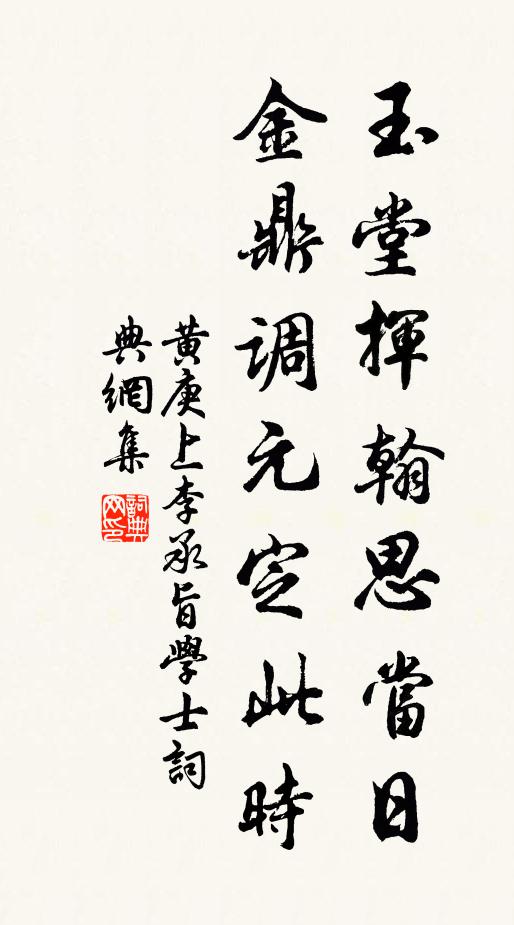 玉堂揮翰思當日
金鼎調元定此時
黄庚上李承旨學士詞
典網集
詞典網印